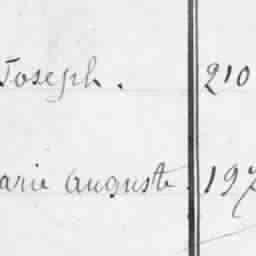 Joseph. 210
arie Auguste. 197